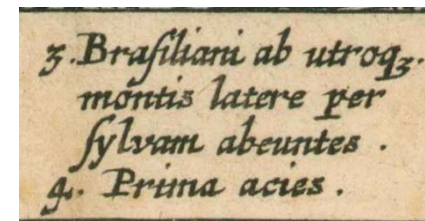 3. Braſiliani ab utroqꝫ.
montis latere per
ſylvam abeuntes .
4. Prima acies .